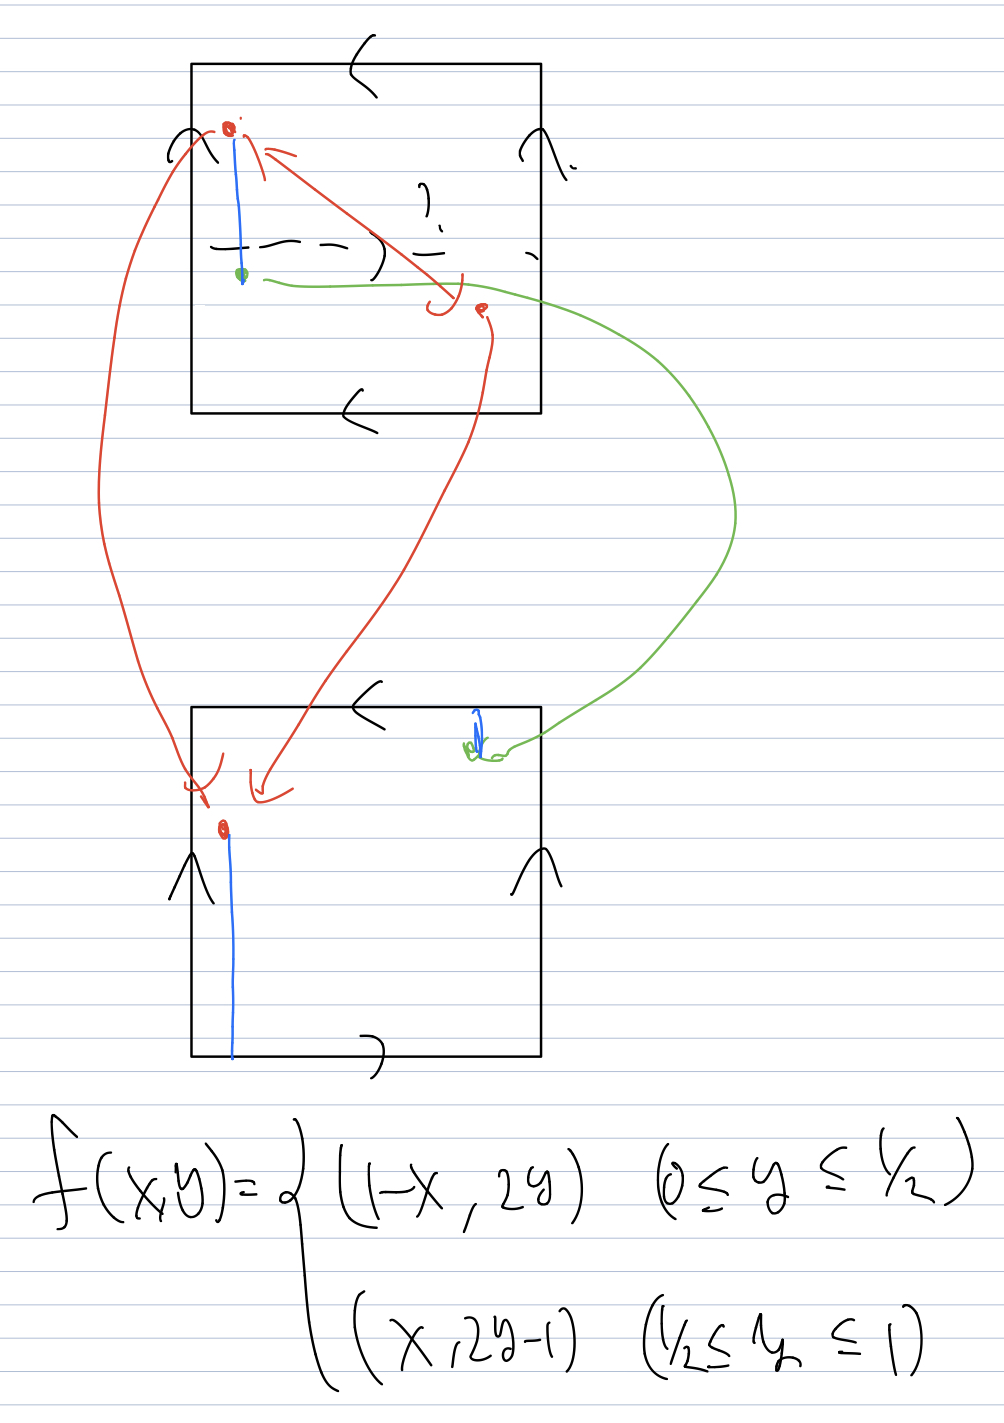 ?
f(x,y)= { (1-x, 2y) (0 ≤ y ≤ 1/2)
(x, 2y-1) (1/2 ≤ y ≤ 1)